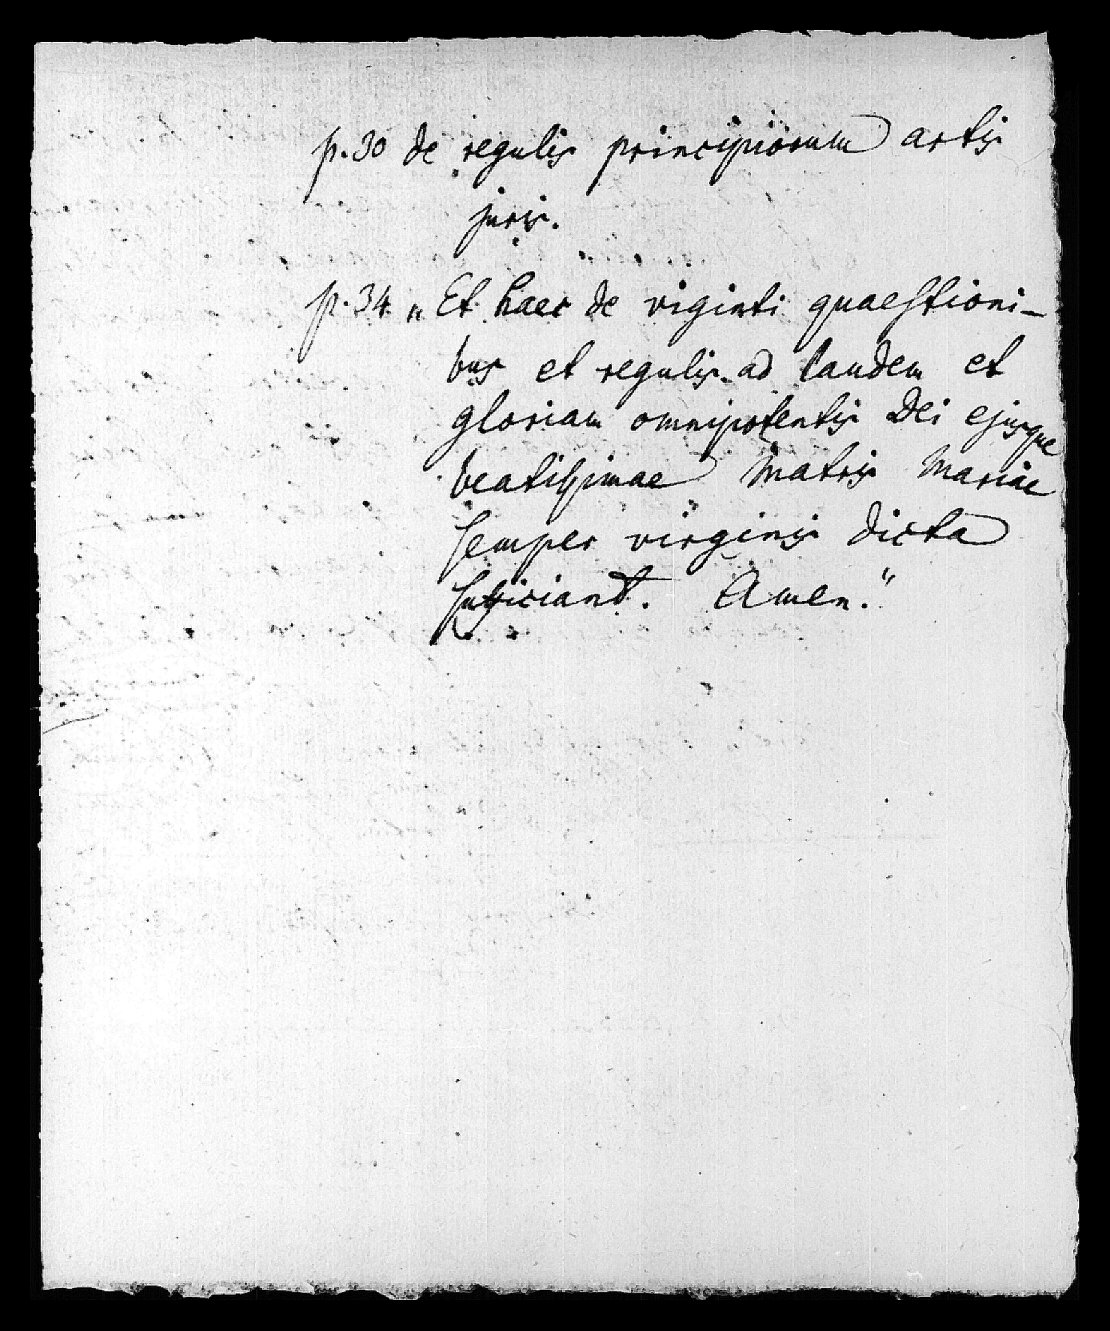 p. 30 de regulis principiorum artis
juris.
p. 34 „Et haec de viginti quaestioni-
bus et regulis ad laudem et
gloriam omnipotentis Dei ejusque
beatissimae Matris Mariae
semper virginis dicta
sufficiant. Amen."